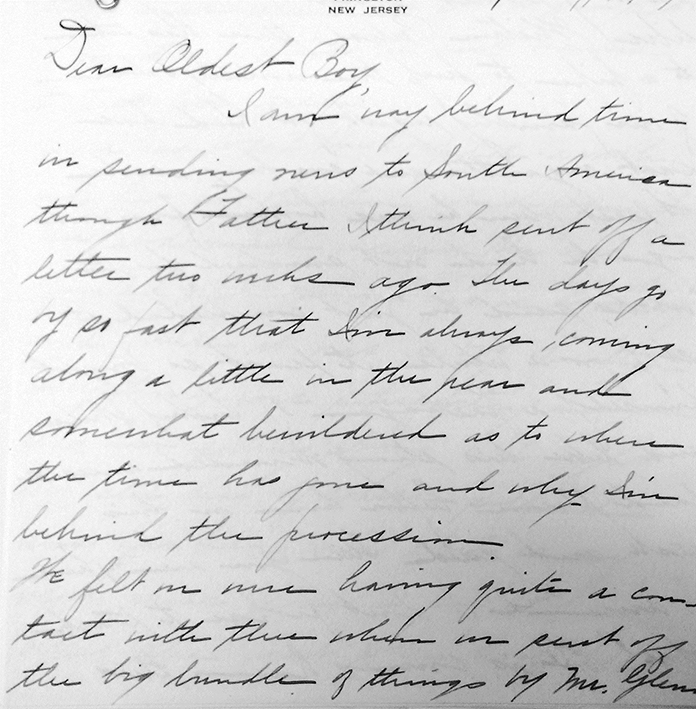 NEW JERSEY
Dear Oldest Boy,
I am way behind time
in sending news to South America
though Father I think sent off a
letter two weeks ago. The days go
by so fast that I'm always coming
along a little in the rear and
somewhat bewildered as to where
the time has gone and why I'm
behind the procession.
We felt we were having quite a con-
tact with thee when we sent off
the big bundle of things by Mr. Glenn